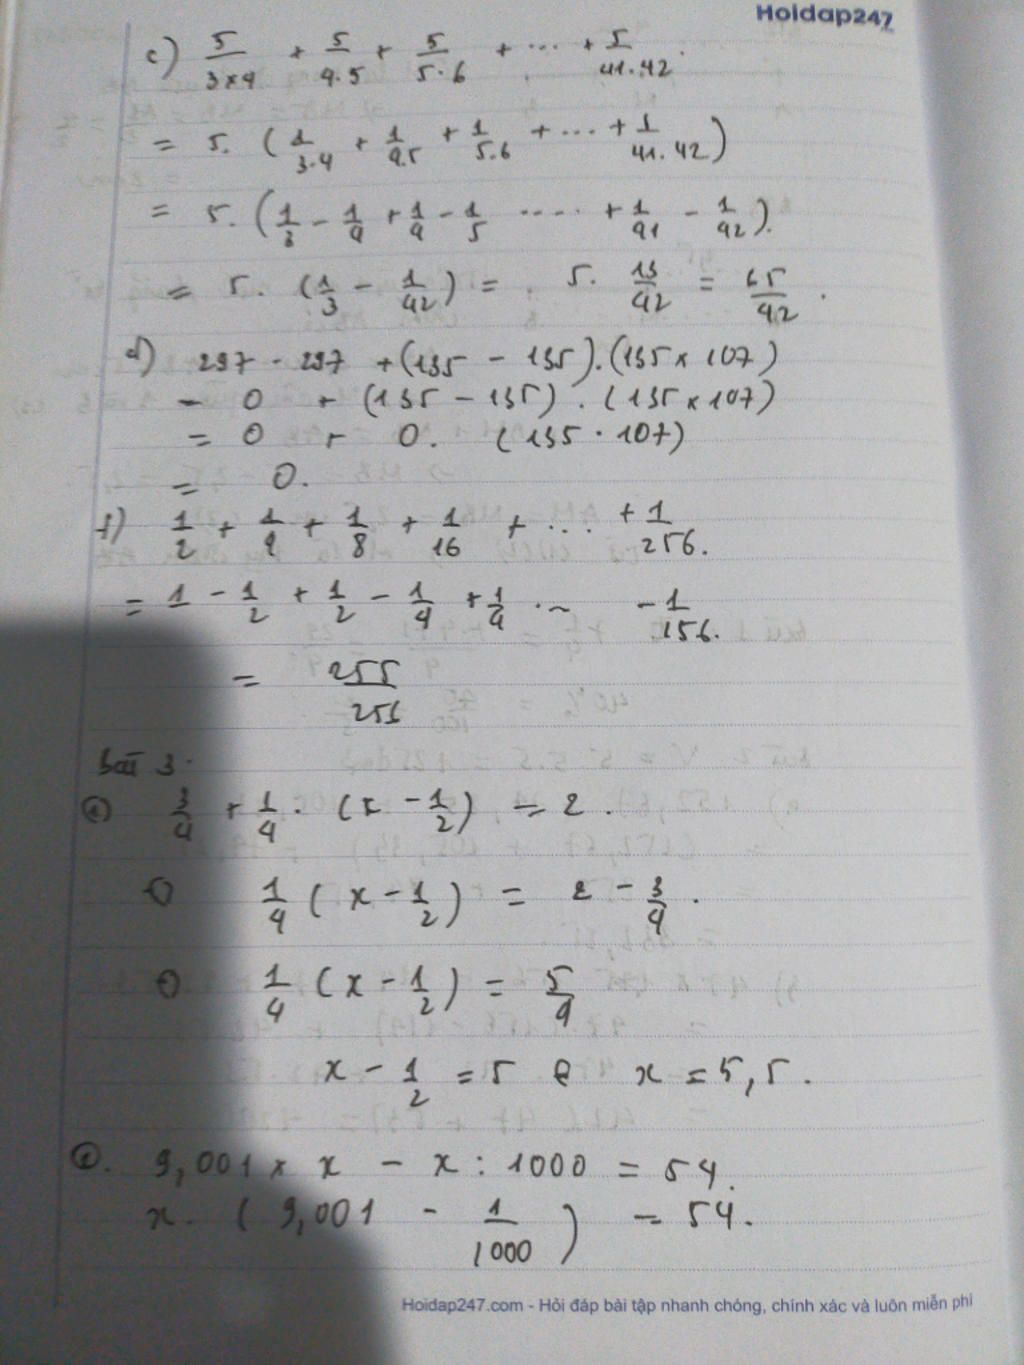 Hoidap247
c) 5/3×4 + 5/4.5 + 5/5.6 + ... + 5/41.42.
= 5. (1/3.4 + 1/4.5 + 1/5.6 + ... + 1/41.42)
= 5. (1/3 - 1/4 + 1/4 - 1/5 ..... + 1/41 - 1/42).
= 5. (1/3 - 1/42) = 5. 13/42 = 65/42.
d) 297 - 297 + (135 - 135).(135 × 107)
= 0 + (135 - 135) . (135 × 107)
= 0 + 0. (135 . 107)
= 0.
f) 1/2 + 1/4 + 1/8 + 1/16 + ... + 1/256.
= 1 - 1/2 + 1/2 - 1/4 + 1/4 ... - 1/156.
= 255/256
bài 3.
3/4 + 1/4 . (x - 1/2) = 2.
1/4 (x - 1/2) = 2 - 3/4.
1/4 (x - 1/2) = 5/4
x - 1/2 = 5 x = 5,5.
9,001 × x - x : 1000 = 54.
x. (9,001 - 1/1000) = 54.
Hoidap247.com - Hỏi đáp bài tập nhanh chóng, chính xác và luôn miễn phí